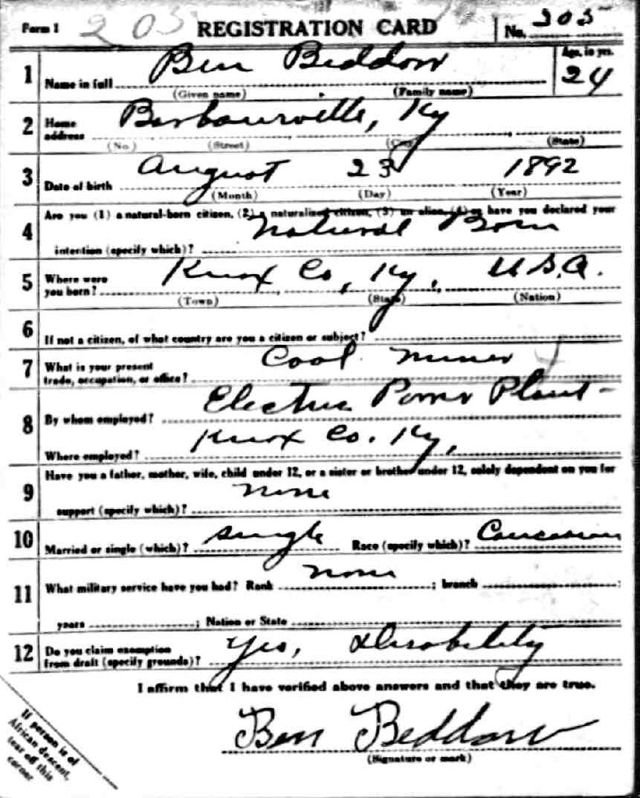 Form 1 203 REGISTRATION CARD No. 203
1 Name in full Ben Beddow Age, in yrs. 24
(Given name) (Family name)
2 Home address Barbourville, Ky
(No.) (Street) (City) (State)
3 Date of birth August 23 1892
(Month) (Day) (Year)
4 Are you (1) a natural-born citizen, (2) a naturalized citizen, (3) an alien, (4) or have you declared your
intention (specify which)? Natural Born
5 Where were you born? Knox Co, Ky, U.S.A.
(Town) (State) (Nation)
6 If not a citizen, of what country are you a citizen or subject?
7 What is your present trade, occupation, or office? Coal miner
8 By whom employed? Electric Power Plant
Where employed? Knox Co. Ky,
9 Have you a father, mother, wife, child under 12, or a sister or brother under 12, solely dependent on you for
support (specify which)? none
10 Married or single (which)? single Race (specify which)? Caucasian
11 What military service have you had? Rank none ; branch ;
years ; Nation or State
12 Do you claim exemption from draft (specify grounds)? Yes, Disability
I affirm that I have verified above answers and that they are true.
Ben Beddow
(Signature or mark)
If person is of
African descent,
tear off this
corner